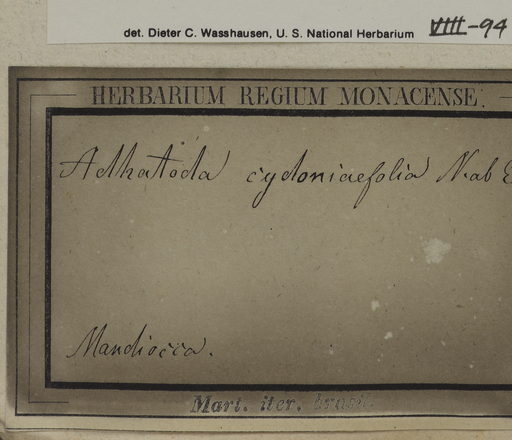 det. Dieter C. Wasshausen, U. S. National Herbarium VIII-94
HERBARIUM REGIUM MONACENSE.
Adhatoda cydoniaefolia N. ab E
Mandiocca.
Mart. iter. brasil.